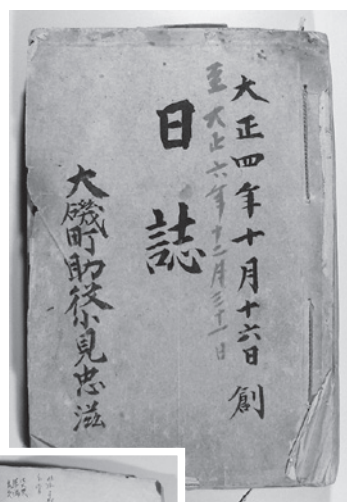 大正四年十月十六日創
至大正六年十二月三十一日
日誌
大磯町助役小見忠滋